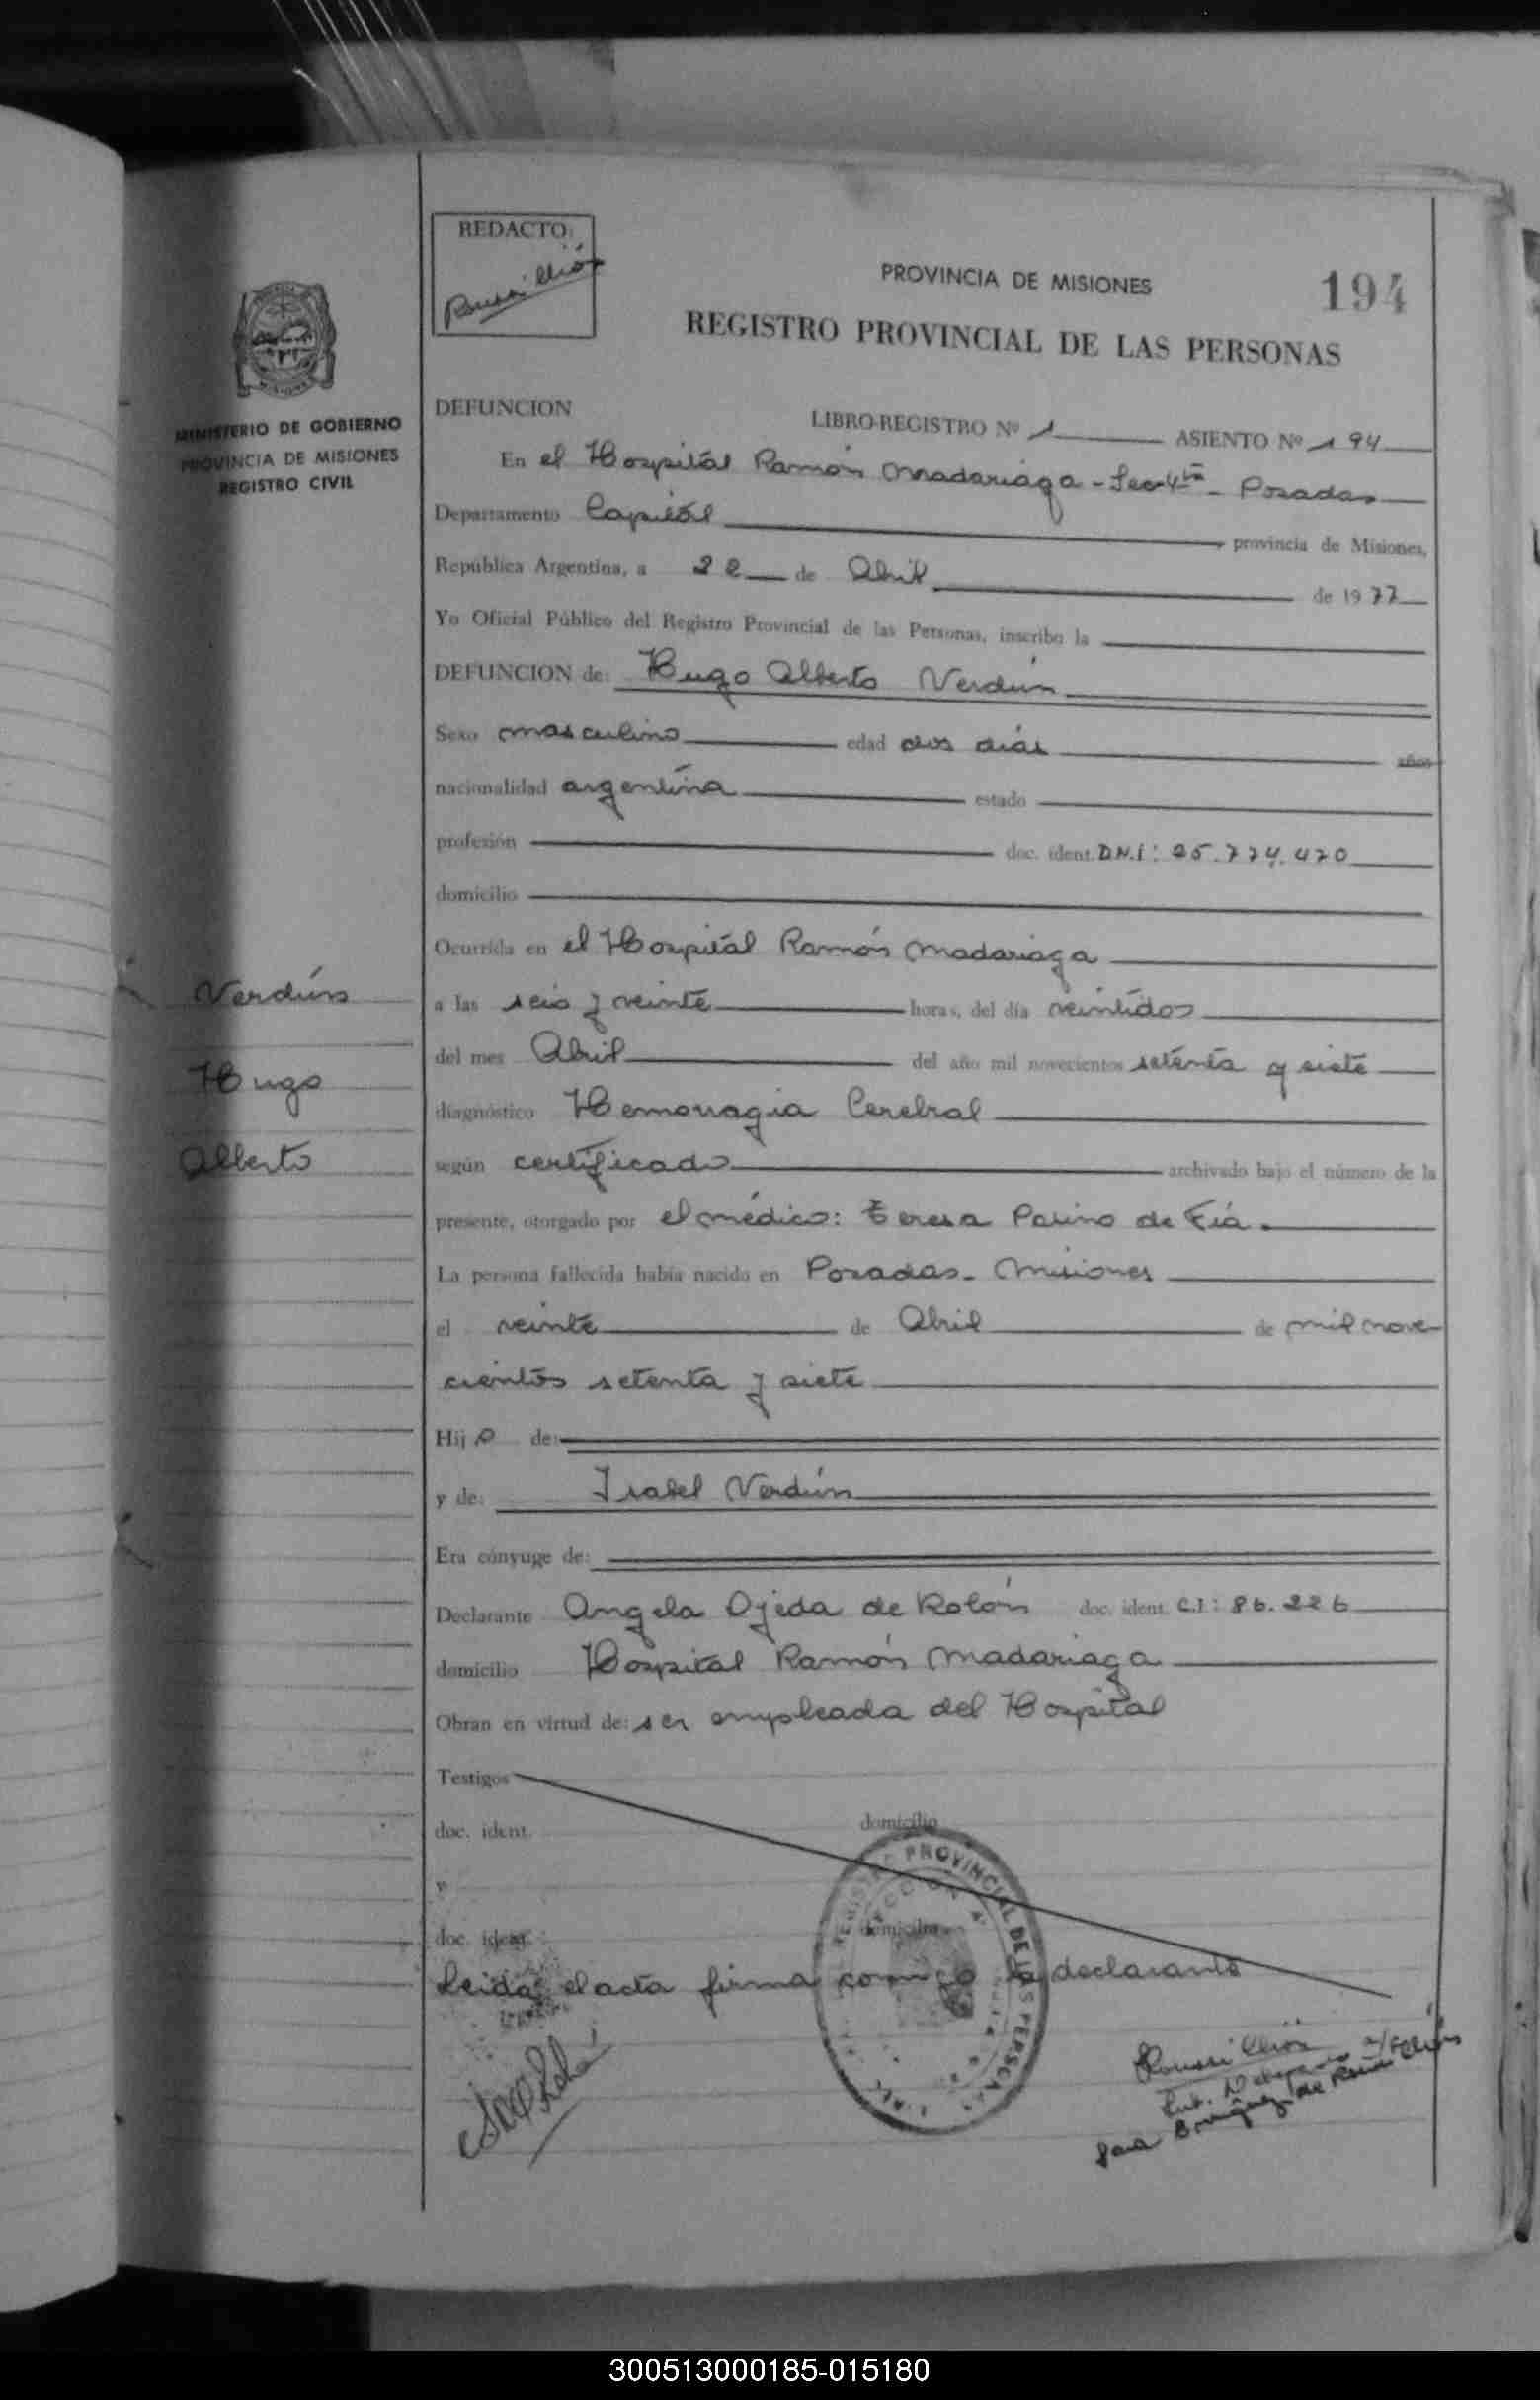 REDACTO:
PROVINCIA DE MISIONES
194
REGISTRO PROVINCIAL DE LAS PERSONAS
MINISTERIO DE GOBIERNO
PROVINCIA DE MISIONES
REGISTRO CIVIL
DEFUNCION
LIBRO-REGISTRO Nº 1 ASIENTO Nº 194
En el Hospital Ramón Madariaga - Sec 4ta - Posadas
Departamento Capital provincia de Misiones,
República Argentina, a 22 de Abril de 1977
Yo Oficial Público del Registro Provincial de las Personas, inscribo la
DEFUNCION de: Hugo Alberto Verdún
Sexo masculino edad dos días años
nacionalidad argentina estado
profesión doc. ident. D.N.I: 25.774.470
domicilio
Ocurrida en el Hospital Ramón Madariaga
Verdún
a las seis y veinte horas, del día veintidos
Hugo
del mes Abril del año mil novecientos setenta y siete
diagnóstico Hemorragia Cerebral
Alberto
según certificado archivado bajo el número de la
presente, otorgado por el médico: Teresa de
La persona fallecida había nacido en Posadas - Misiones
el veinte de Abril de mil nove
cientos setenta y siete
Hijo de:
y de: Isabel Verdún
Era cónyuge de:
Declarante Angela Ojeda de Rolón doc. ident. C.I: 86.226
domicilio Hospital Ramón Madariaga
Obran en virtud de: ser empleada del Hospital
Testigos
doc. ident. domicilio
y
doc. ident. domicilio
Leida el acta firma conmigo la declarante
REGISTRO PROVINCIAL DE LAS PERSONAS
300513000185-015180